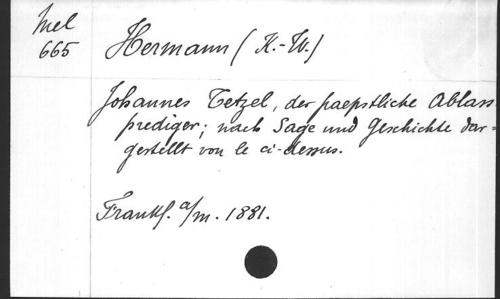 Mel
665
Hermann (K.-W.)
Johannes Tetzel, der paepstliche Ablass
prediger; nach Sage und Geschichte dar=
gestellt von le ci-dessus.
Frankf. a/m. 1881.